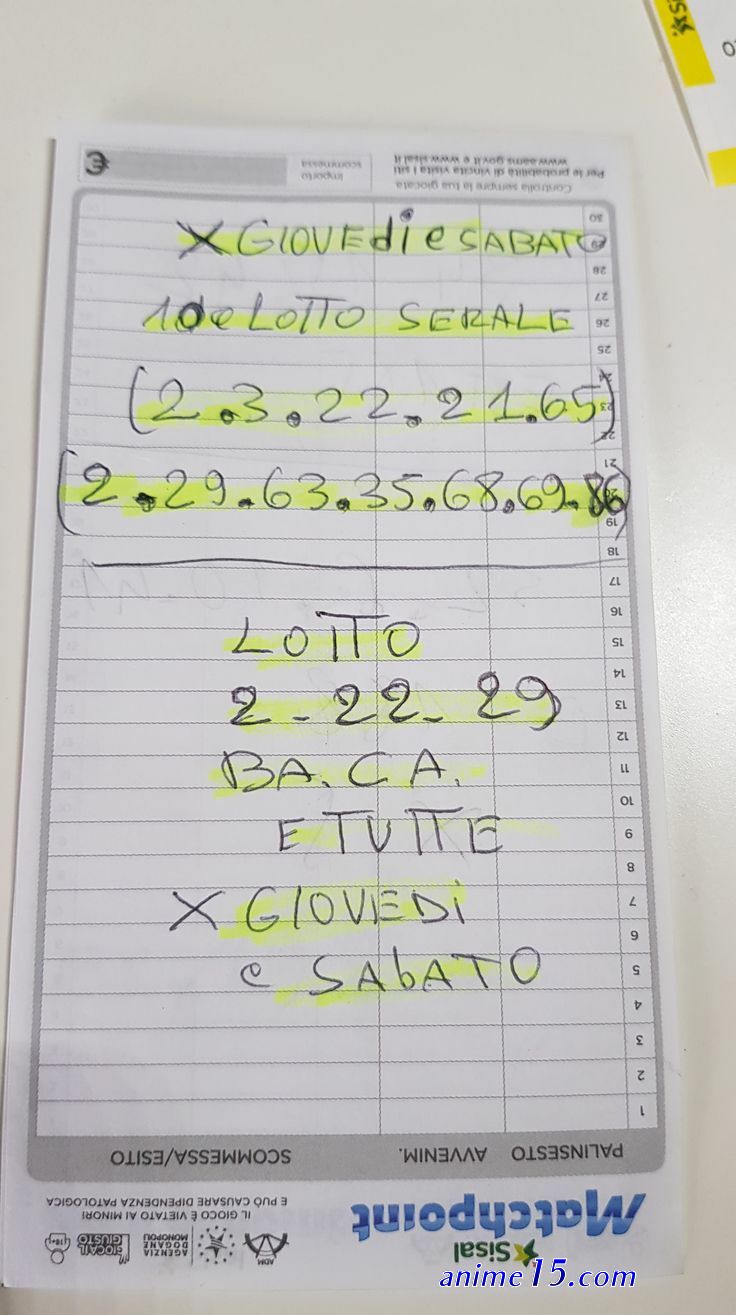 X GIOVEdì e SABATO
10e LOTTO SERALE
(2.3.22.21.65)
(2.29.63.35.68.69.86)
LOTTO
2-22-29
BA. CA.
E TUTTE
X GIOVEDi
e SAbATO
Sisal
Matchpoint
ADM
AGENZIA DOGANE MONOPOLI
GIOCA IL GIUSTO
18+
IL GIOCO È VIETATO AI MINORI
E PUÒ CAUSARE DIPENDENZA PATOLOGICA
PALINSESTO AVVENIM. SCOMMESSA/ESITO
1
2
3
4
5
6
7
8
9
10
11
12
13
14
15
16
17
18
19
21
22
23
25
26
27
28
30
Controlla sempre la tua giocata
Per le probabilità di vincita visita i siti
www.aams.gov.it e www.sisal.it
importo
scommessa
€
anime15.com